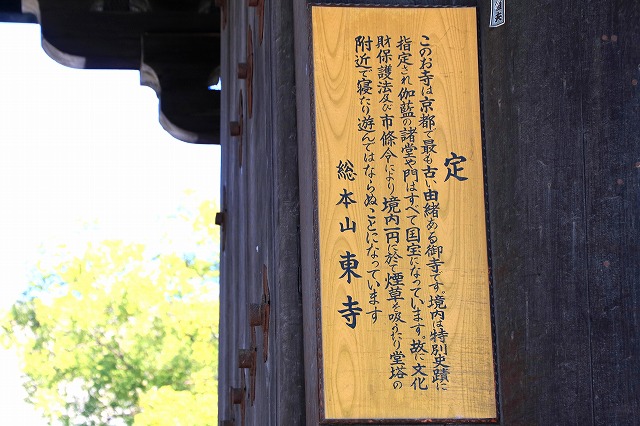 定
このお寺は京都で最も古い由緒ある御寺です。境内は特別史蹟に
指定され伽藍の諸堂や門はすべて国宝になっています。故に文化
財保護法及び市條令により境内一円に於て煙草を吸うたり堂塔の
附近で寝たり遊んではならぬことになっています
総本山東寺